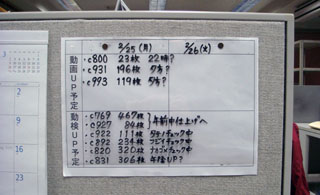 2/25(月) 2/26(火)
動画UP予定
・c800 23枚 22時?
・c931 196枚 夕方?
・c993 119枚 夕方?
動検UP予定
・c769 467枚
・c927 84枚
午前中仕上げへ
・c922 111枚 チェック中
・c892 234枚 チェック中
・c820 320枚 チェック中
・c831 306枚 UP?
2
9
16
23